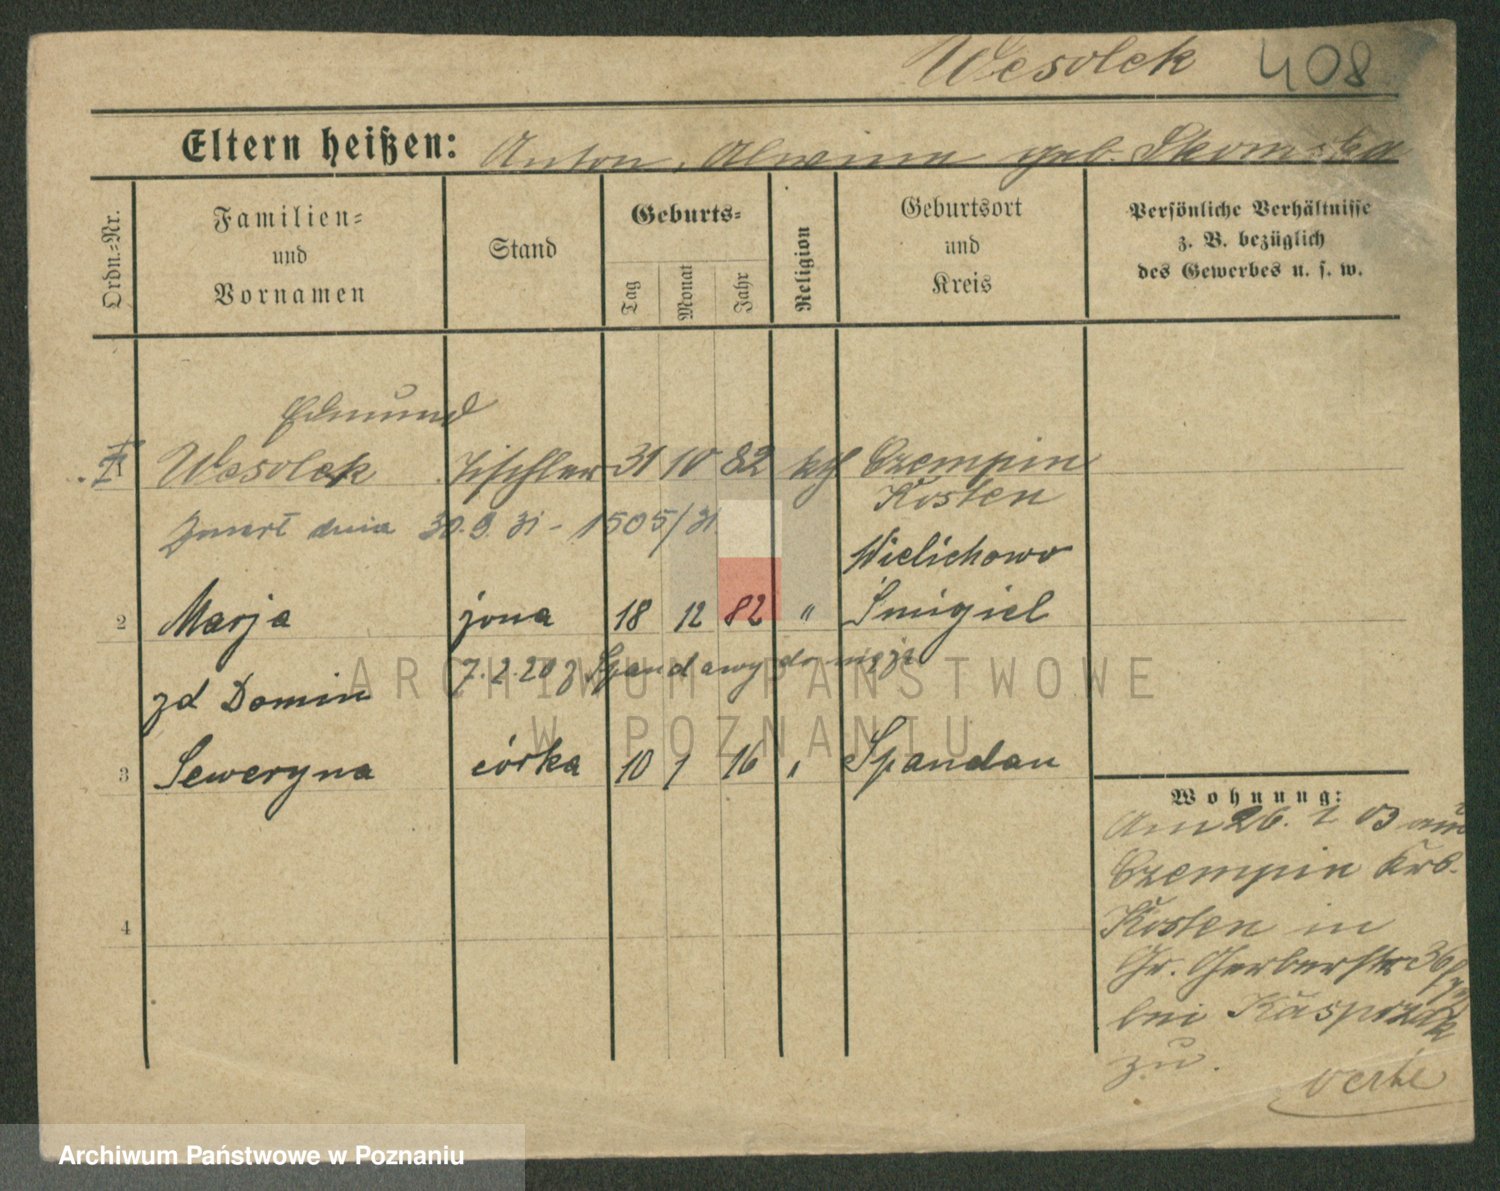 Wesolek 408
Eltern heißen: Anton, Alwina geb. Skomska
Ordn.-Nr.
Familien-
und
Vornamen
Stand
Geburts-
Tag
Monat
Jahr
Religion
Geburtsort
und
Kreis
Persönliche Verhältnisse
z. B. bezüglich
des Gewerbes u. s. w.
Edmund
1 Wesolek Tischler 31 10 82 kth Czempin
Kosten
Zmarł dnia 30.9.31 - 1505/31
Wielichowo
2 Marja żona 18 12 82 " Śmigiel
7.2.20 z Spandawy do męża
zd Domin
3 Seweryna córka 10 1 16 " Spandau
4
Wohnung:
Am 26. 1 03 aus
Czempin Krs.
Kosten in
Gr. Gerberstr 36
bei Kasprzak
zu.
verte
ARCHIWUM PAŃSTWOWE
W POZNANIU
Archiwum Państwowe w Poznaniu